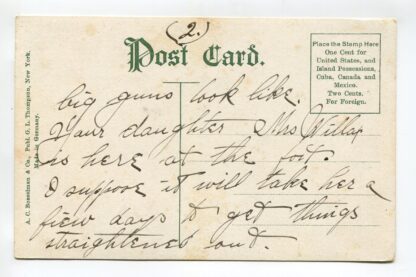 (2.)
Post Card.
Place the Stamp Here
One Cent for
United States, and
Island Possessions,
Cuba, Canada and
Mexico.
Two Cents.
For Foreign.
A. C. Bosselman & Co., Publ. G. L. Thompson, New York.
Made in Germany.
big guns look like.
Your daughter Mrs Willox
is here at the fort.
I suppose it will take her a
few days to get things
straightened out.